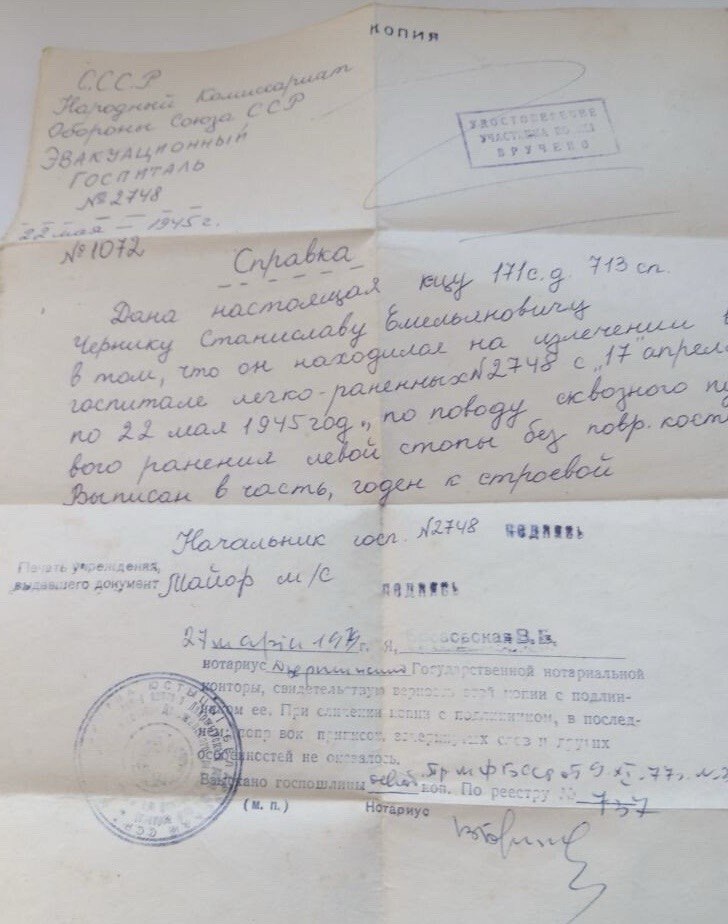 КОПИЯ
С.С.С.Р
Народный Комиссариат
Обороны Союза ССР
ЭВАКУАЦИОННЫЙ
ГОСПИТАЛЬ
№ 2748
22 мая 1945 г.
УДОСТОВЕРЕНИЕ
УЧАСТНИКА ВОЙНЫ
ВРУЧЕНО
№ 1072
Справка
Дана настоящая кцу 171 с.д. 713 сп.
Чернику Станиславу Емельяновичу
в том, что он находился на излечении в
госпитале легко-раненных №2748 с "17" апрел
по 22 мая 1945 год, по поводу сквозного пу
вого ранения левой стопы без повр. кост
Выписан в часть, годен к строевой
Начальник госп. №2748 подпись
Печать учреждения,
выдавшего документ
Майор м/с подпись
27 марта 1979 г. Я, В.В.
нотариус Государственной нотариальной
конторы, свидетельствую верность этой копии с подлин-
ником ее. При сличении копии с подлинником, в послед-
нем подчисток, приписок, зачеркнутых слов и других
особенностей не оказалось.
Взыскано госпошлины коп. По реестру № 737
(м. п.) Нотариус